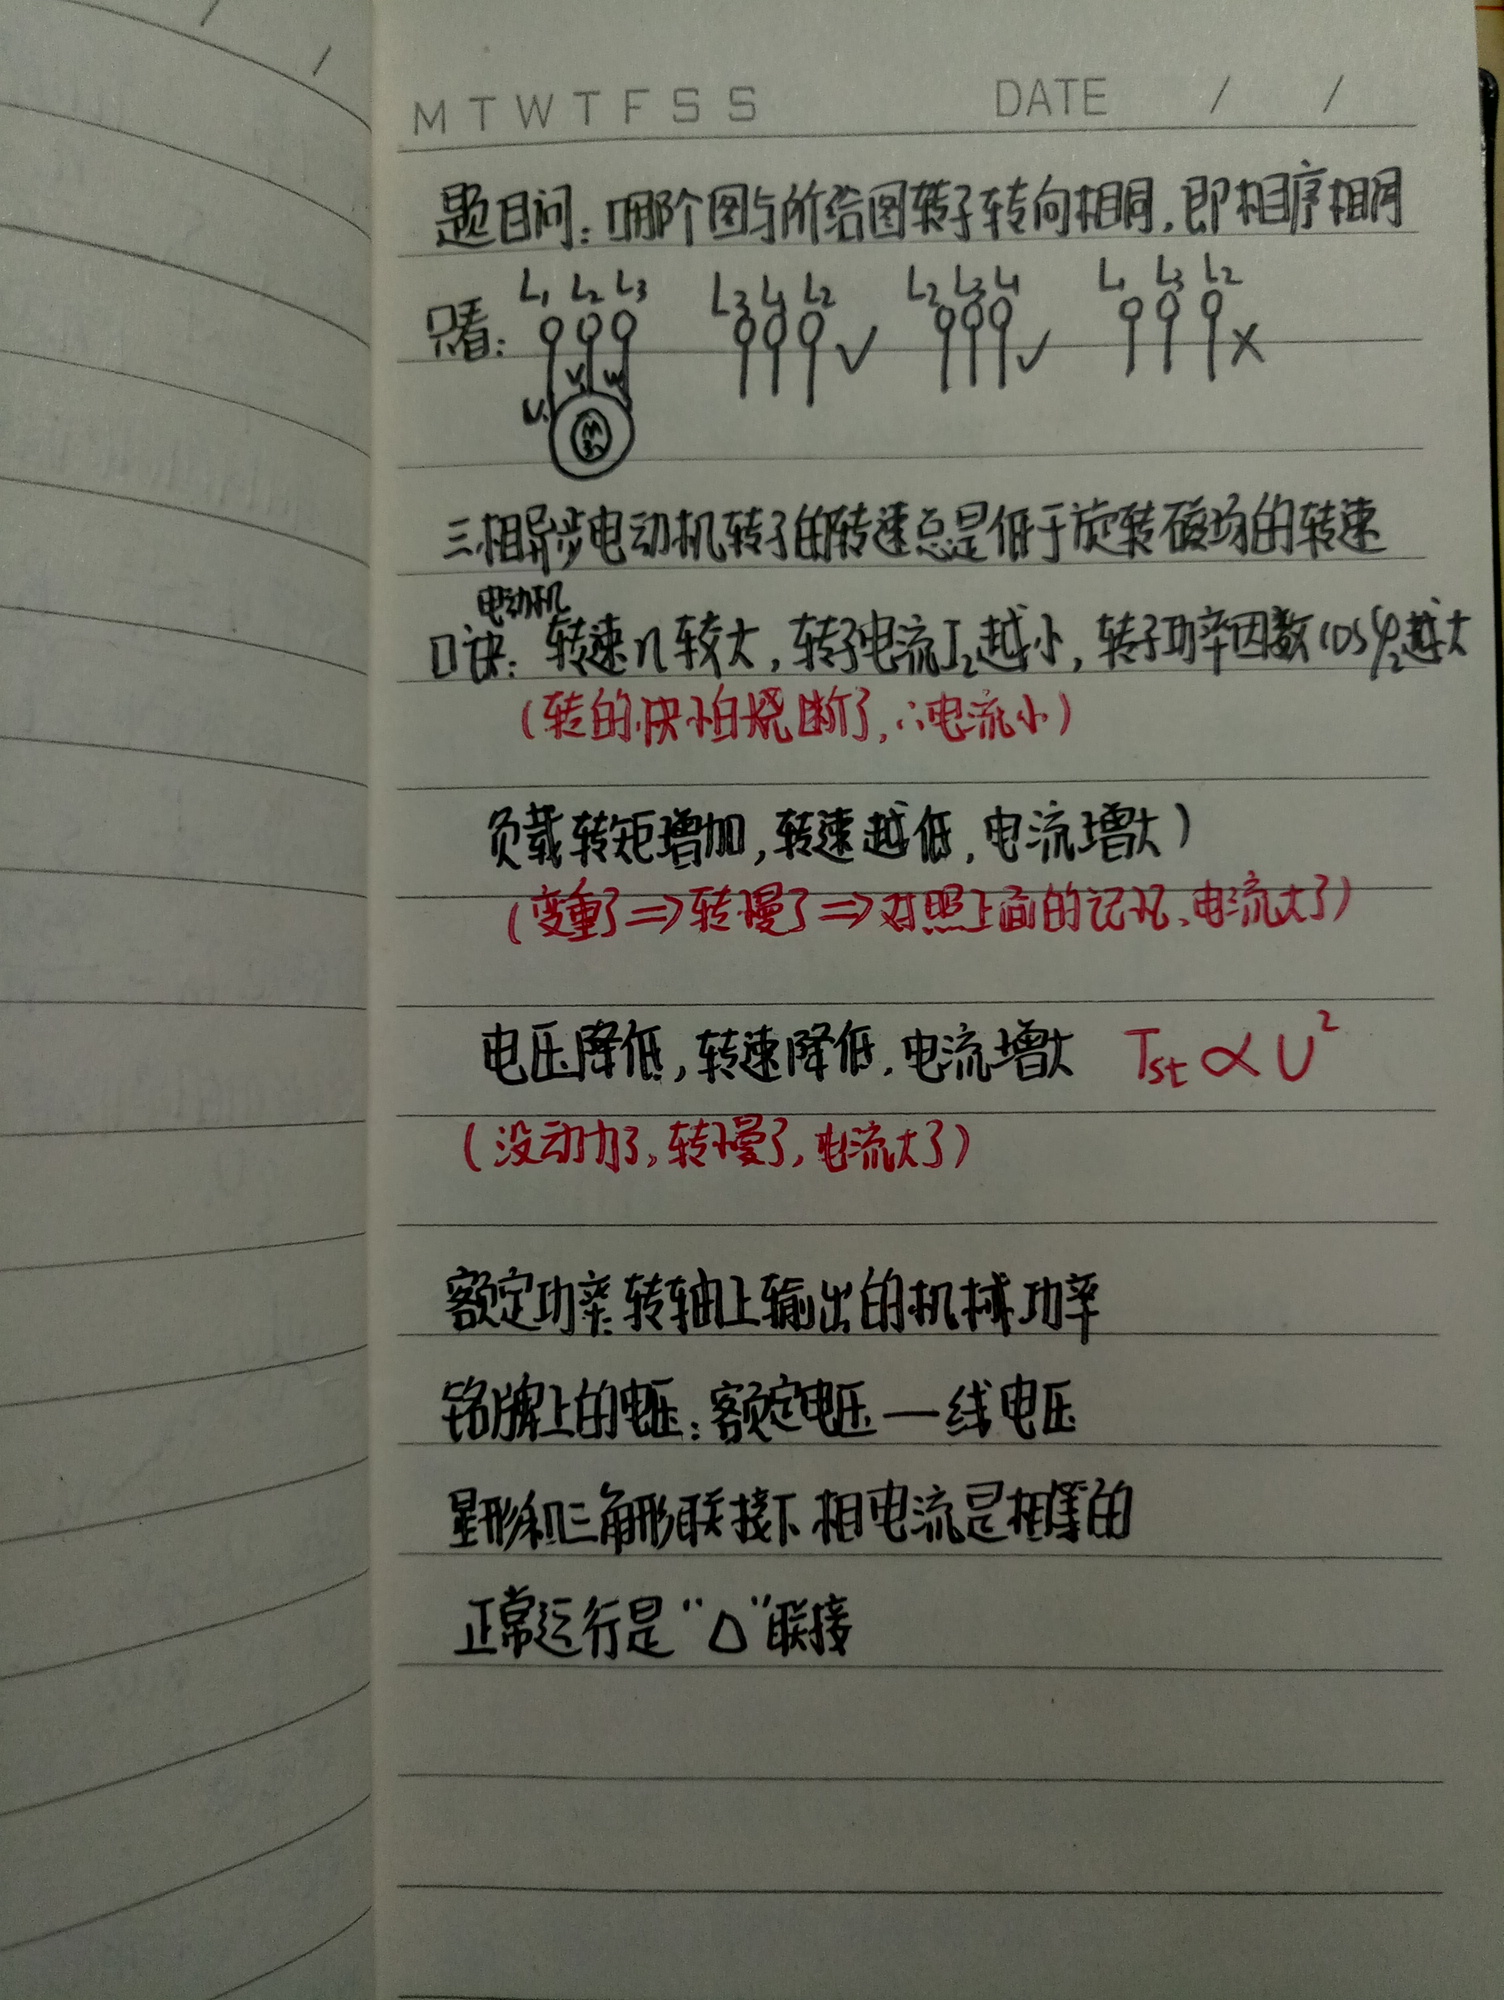 M T W T F S S DATE / /
题目问：哪个图与所给图转子转向相同，即相序相同
只看： L₁ L₂ L₃ L₃ L₁ L₂ ✓ L₂ L₃ L₁ ✓ L₁ L₃ L₂ ×
U₁ V₁ W₁
M
3~
三相异步电动机转子的转速总是低于旋转磁场的转速
电动机
口诀：转速n较大，转子电流I₂越小，转子功率因数cosφ₂越大
（转的快怕烧断了，∴电流小）
负载转矩增加，转速越低，电流增大）
（变重了⇒转慢了⇒对照上面的记忆、电流大了）
电压降低，转速降低，电流增大 Tst∝U²
（没动力了，转慢了，电流大了）
额定功率：转轴上输出的机械功率
铭牌上的电压：额定电压—线电压
星形和三角形联接下相电流是相等的
正常运行是“△”联接